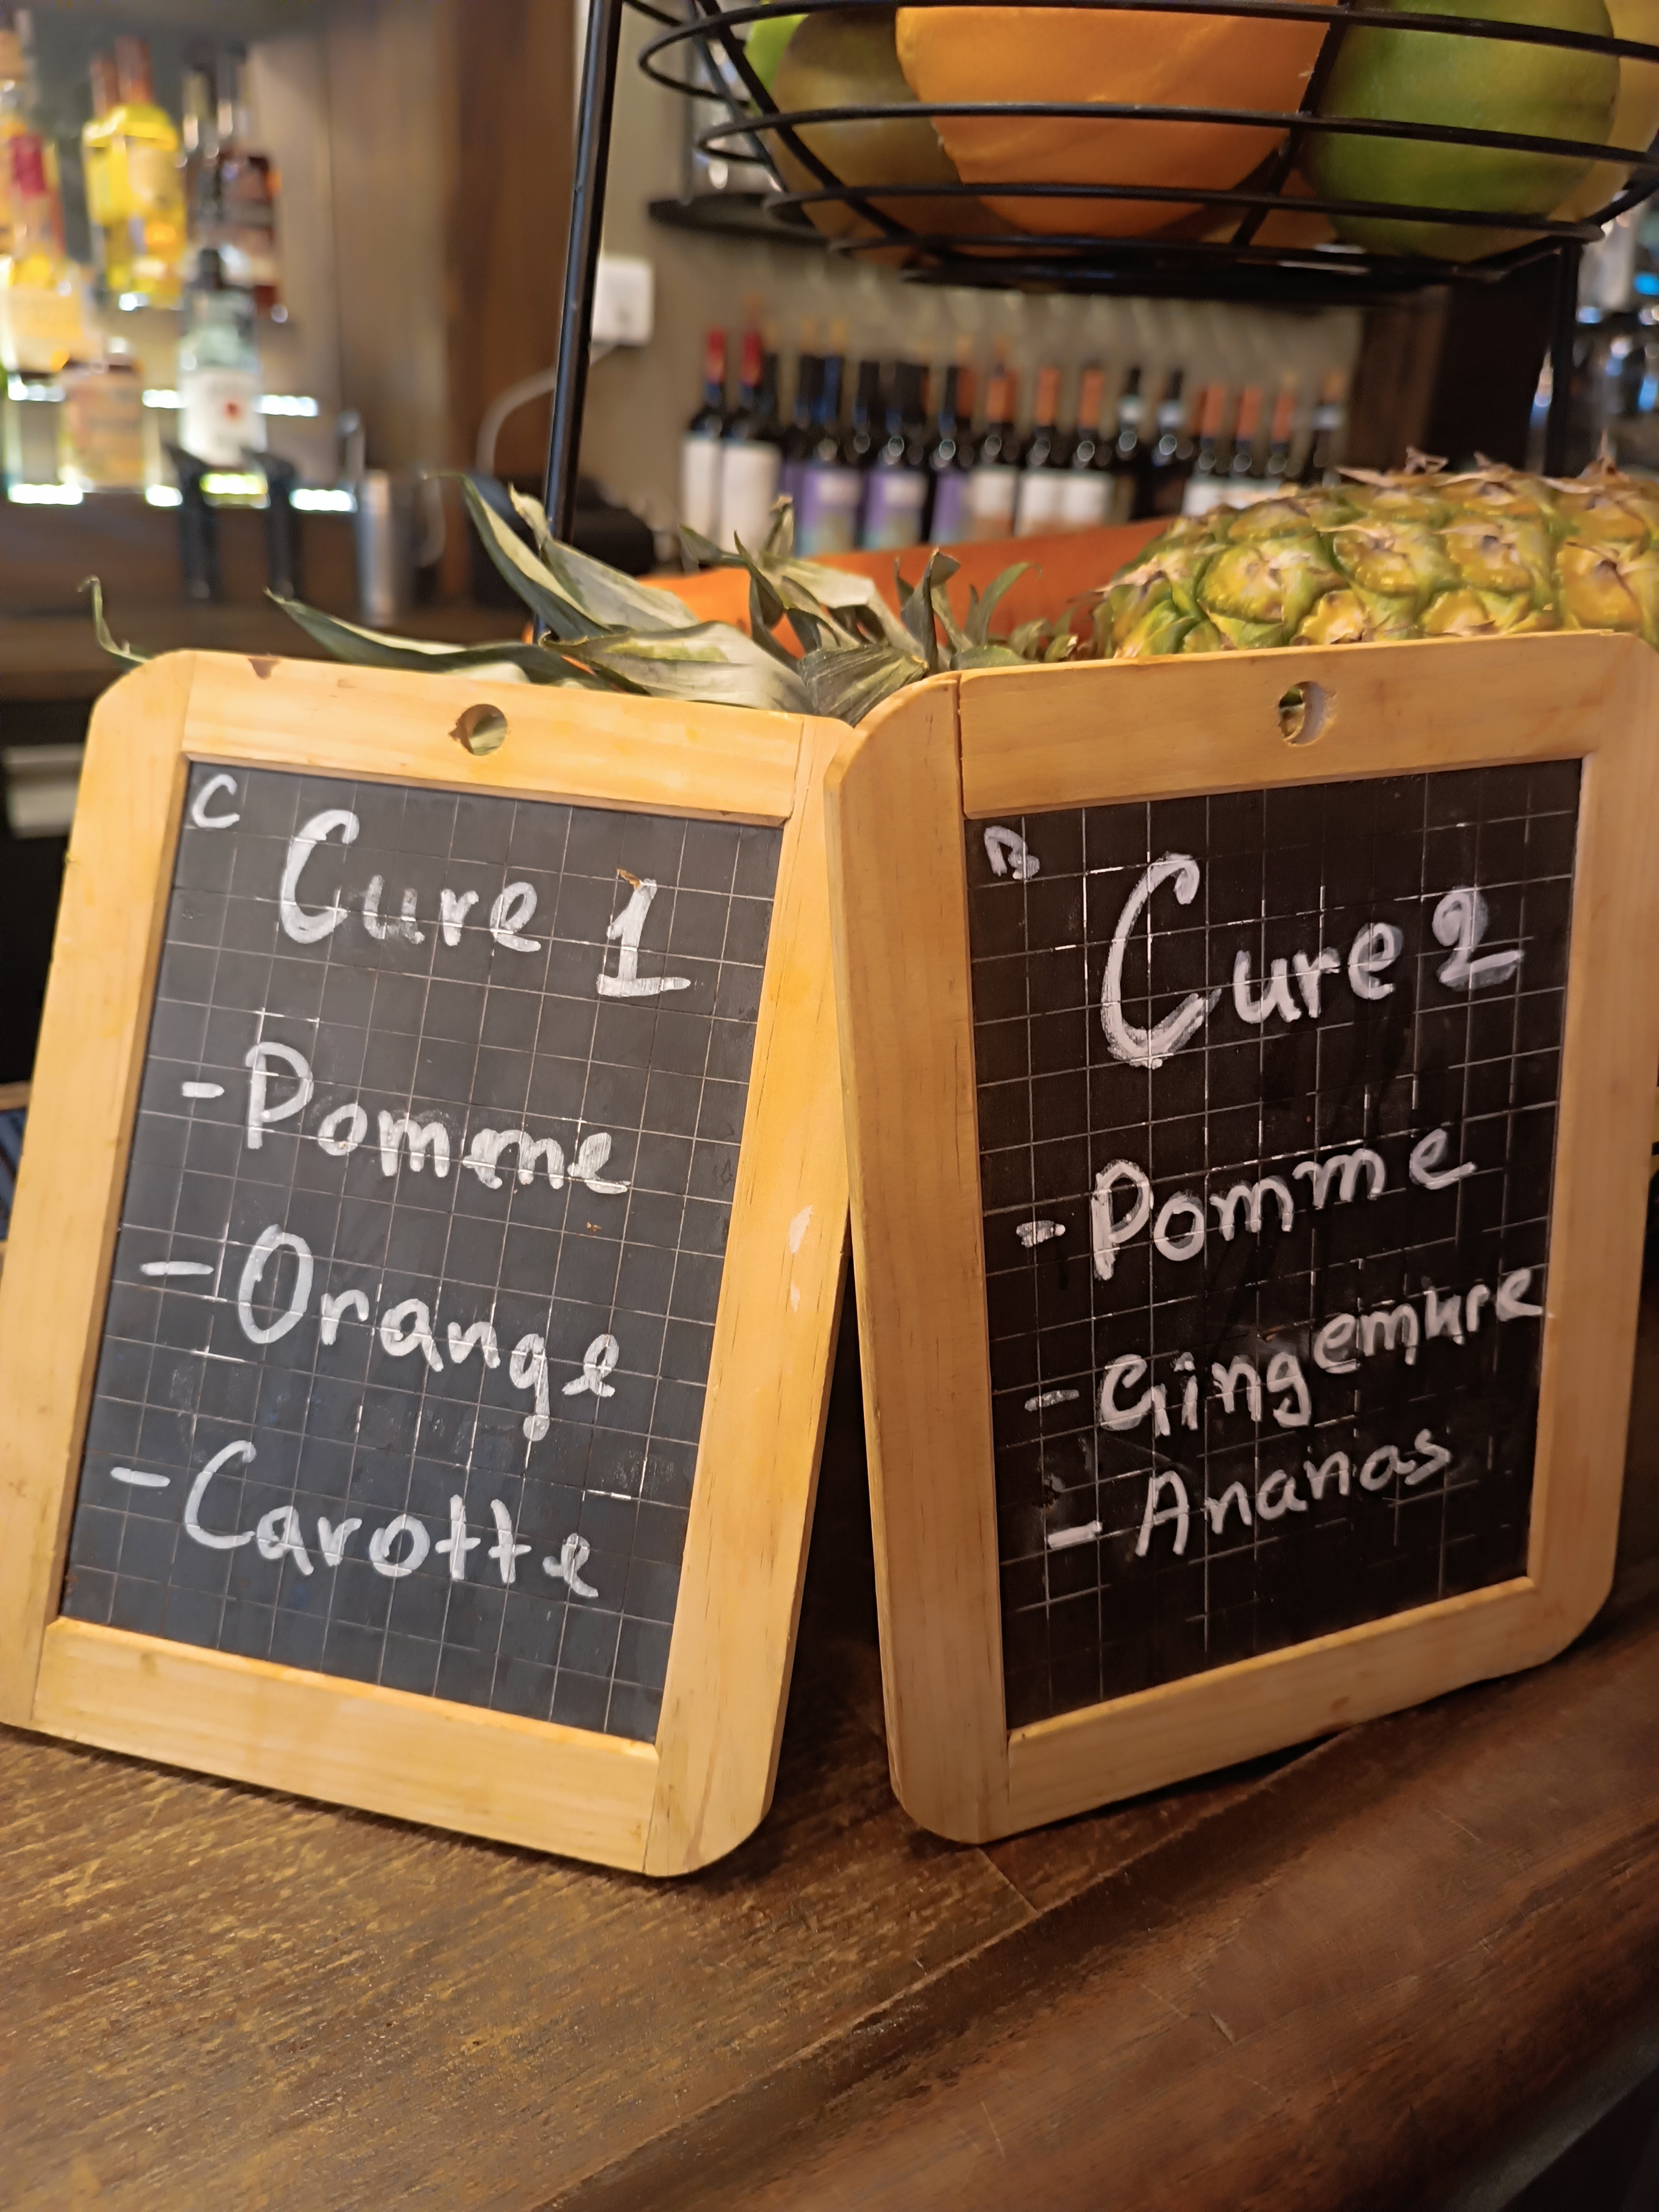 C
Cure 1
- Pomme
- Orange
- Carotte
B
Cure 2
- Pomme
- Gingembre
- Ananas